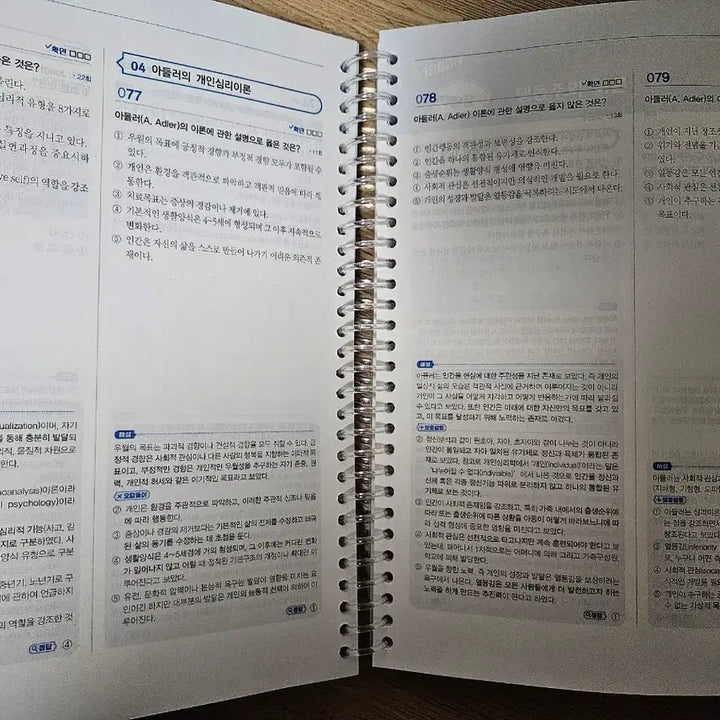 은 것은?
✓확인 □□□
•22회
린다.
리적 유형을 8가지로
특징을 지니고 있다.
실현과정을 중요시하
ve self)의 역할을 강조
ualization)이며, 자기
통해 충분히 발달되
적, 물질적 차원으로
한다.
noanalysis)이론이라
psychology)이라
심리적 기능(사고, 감
지로 구분하였다. 사
양식 유형으로 구분
중년기, 노년기로 구
에 관하여 언급하지
의 역할을 강조한 것
정답 ④
04 아들러의 개인심리이론
077
✓확인 □□□
아들러(A. Adler)의 이론에 관한 설명으로 옳은 것은?
•11회
① 우월의 목표에 긍정적 경향과 부정적 경향 모두가 포함될 수
있다.
② 개인은 환경을 객관적으로 파악하고 객관적 믿음에 따라 행
동한다.
③ 치료목표는 증상의 경감이나 제거에 있다.
④ 기본적인 생활양식은 4~5세에 형성되며 그 이후 지속적으로
변화한다.
⑤ 인간은 자신의 삶을 스스로 만들어 나가기 어려운 의존적 존
재이다.
해설
우월의 목표는 파괴적 경향이나 건설적 경향을 모두 취할 수 있다. 긍
정적 경향은 사회적 관심이나 다른 사람의 행복을 지향하는 이타적 목
표이고, 부정적인 경향은 개인적인 우월성을 추구하는 자기 존중, 권
력, 개인적 허세와 같은 이기적인 목표라고 보았다.
✕ 오답풀이
② 개인은 환경을 주관적으로 파악하고, 이러한 주관적 신조나 믿음
에 따라 행동한다.
③ 증상이나 경감의 제거보다는 기본적인 삶의 전제를 수정하고 왜곡
된 삶의 동기를 수정하는 데 초점을 둔다.
④ 생활양식은 4~5세경에 거의 형성되며, 그 이후에는 커다란 변화
가 일어나지 않고 어릴 때 정착된 기본구조의 개인이나 확대만 이
루어진다고 보았다.
⑤ 유전, 문화적 압력이나 본능적 욕구는 발달에 영향을 미치는 요
인이긴 하지만 대부분의 발달은 개인의 능동적 선택에 의하여 이
루어진다.
정답 ①
078
✓확인 □□□
아들러(A. Adler) 이론에 관한 설명으로 옳지 않은 것은?
•13회
① 인간행동의 객관성과 보편성을 강조한다.
② 인간을 하나의 통합된 유기체로 인식한다.
③ 출생순위는 생활양식 형성에 영향을 미친다.
④ 사회적 관심은 선천적이지만 의식적인 개발을 필요로 한다.
⑤ 개인의 성장과 발달은 열등감을 극복하려는 시도에서 나온다.
해설
아들러는 인간을 현실에 대한 주관성을 지닌 존재로 보았다. 즉 개인의
일상적 삶의 모습은 객관적 사실에 근거하여 이루어지는 것이 아니라
개인이 그 사실을 어떻게 지각하고 어떻게 반응하는가에 따라 달라질
수 있다고 보았다. 또한 인간은 미래에 대한 자신만의 목표를 갖고 있
고, 이 목표를 달성하기 위해 노력하는 존재로 여겼다.
+ 보충설명
② 정신분석과 같이 원초아, 자아, 초자아와 같이 나누는 것이 아니라
인간이 통일되고 자아 일치된 유기체로 정신과 육체가 통합된 존
재로 보았다. 참고로 개인심리학에서 '개인(individual)'이라는 말은
'나누어질 수 없다(indivisible)' 에서 나온 것으로 인간을 정신과
신체 혹은 각종 정신기능 따위로 분리하지 않고 하나의 통합된 유
기체로 보는 것이다.
③ 인간의 사회적 존재임을 강조하고, 특히 가족 내에서의 출생순위에
따라 또는 출생순위에 따른 상황을 아동이 어떻게 바라보느냐에 따
라 성격 형성에 중요한 영향을 미친다고 보았다.
④ 사회적 관심은 선천적으로 타고나지만 계속 훈련되어야 한다고 보
았는데, 태어나서 1차적으로는 어머니에 의해 그리고 가족구성원
에 의해 발달한다.
⑤ 우월을 향한 노력, 즉 개인의 성장과 발달은 열등감을 보상하려는
욕구에서 나온다. 열등감은 모든 사람들에게 더 발전하고자 하는
노력을 하게 만드는 추진력이 된다고 하였다.
정답 ①
079
아들러(A. Adler)의
① 개인이 지닌 창조
② 위기와 전념을 기준
③ 열등감은 모든 인간
④ 사회적 관심은 선천
⑤ 개인이 추구하는
목표이다.
해설
아들러는 사회적 관심과
(지배형, 기생형, 도피
+ 보충설명
① 아들러는 심리이론
는 점을 강조하면서
창조된다고 보았다
③ 열등감(inferiority
로, 누구나 어떤
④ 사회적 관심(social
식적인 개발을 필
⑤ 개인이 추구하는
수 없는 가상적 목